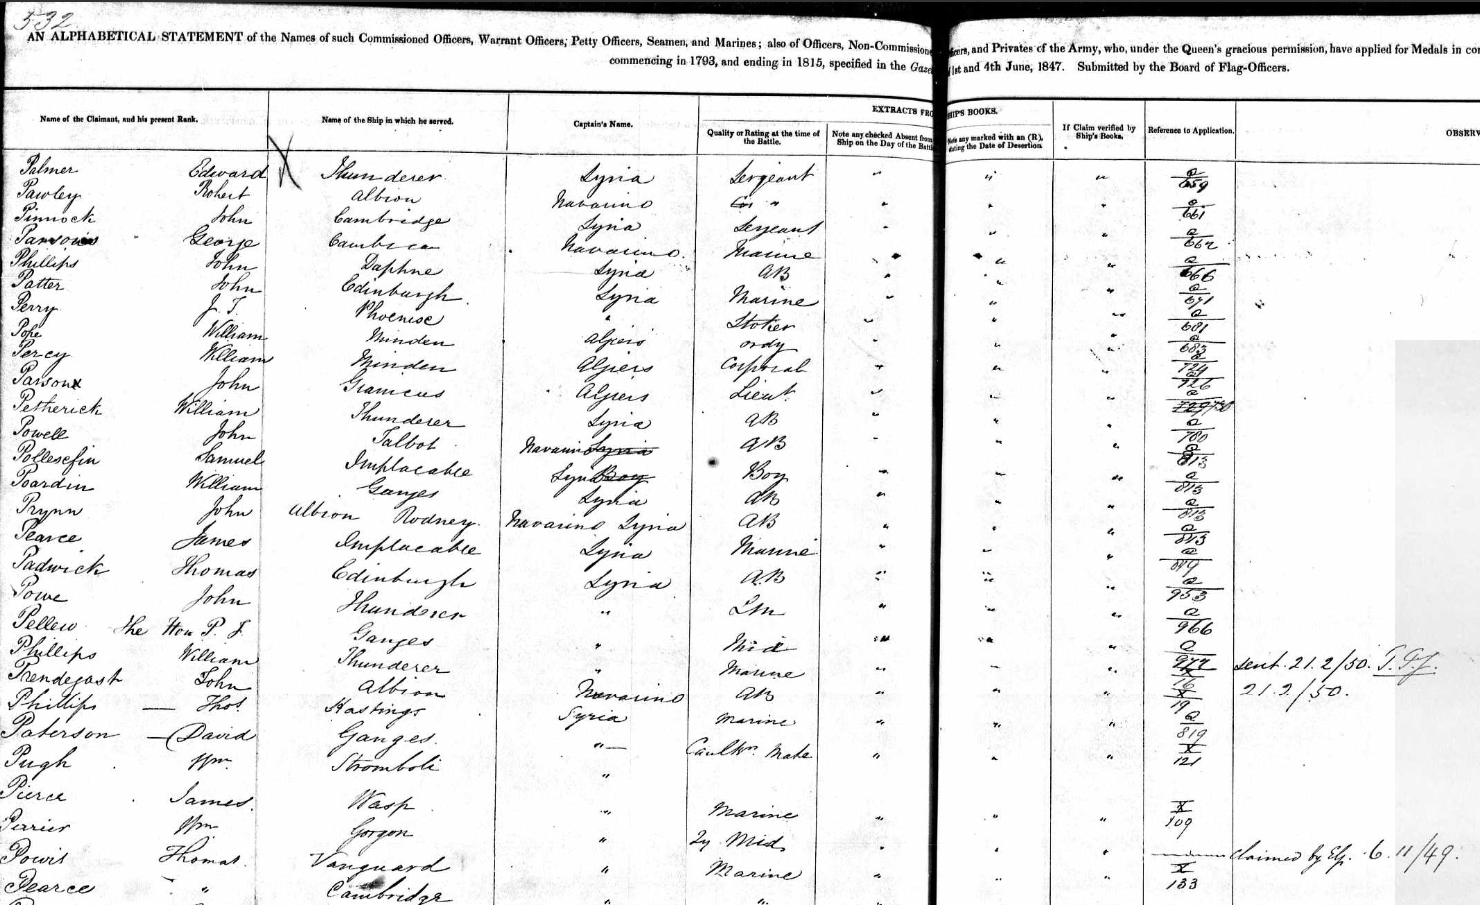 532
AN ALPHABETICAL STATEMENT of the Names of such Commissioned Officers, Warrant Officers; Petty Officers, Seamen, and Marines; also of Officers, Non-Commissione and Privates of the Army, who, under the Queen's gracious permission, have applied for Medals in
commencing in 1793, and ending in 1815, specified in the 1st and 4th June, 1847. Submitted by the Board of Flag-Officers.
EXTRACTS FRO HIPS BOOKS.
Name of the Claimant, and his present Rank. Name of the Ship in which he served. Captain's Name. Quality or Rating at the time of the Battle. Note any checked Absent from Ship on the Day of the Battle Note any marked with an (R), during the Date of Desertion If Claim verified by Ship's Books. Reference to Application. OBSERV
Palmer Edward X Thunderer Syria Sergeant " " " a/659
Pawley Robert Albion Navarino " " " a/661
Pinnock John Cambridge Syria Sergeant " " " a/662
Parsons George Cambrian Navarino Marine " " " a/666
Phillips John Daphne Syria AB " " " a/671
Patter John Edinburgh Syria Marine " " " a/681
Perry J. T. Phoenise " Stoker " " " a/683
Pope William Minden Algiers Ordy " " " a/724
Percy William Minden Algiers Corporal " " " a/726
Parson John Granicus Algiers Lieut " " "
Petherick William Thunderer Syria AB " " " a/780
Powell John Talbot Navarin AB " " " a/813
Samuel Implacable Syria Boy " " " a/813
Poardin William Ganges Syria AB " " " a/813
Prynn John Albion Rodney Navarino Syria AB " " " a/843
Pearce James Implacable Syria Marine " " " a/879
Padwick Thomas Edinburgh Syria AB " " " a/953
Powe John Thunderer " Lm " " " a/966
Pellew The Hon P. J. Ganges " Mid " " " a/977 sent 21.2/50.
Phillips William Thunderer " Marine " " " X/16 21.2/50.
Prendegast John Albion Navarino AB " " " X/19
Phillips Thos Hastings Syria Marine " " " a/819
Paterson David Ganges " Caulkrs Mate " " " X/121
Pugh Wm Stromboli "
Pierce James Wasp " Marine " " " X/109
Perrier Wm Gorgon " Mid " " " claimed by 6.11/49.
Powis Thomas Vanguard " Marine " " " X/133
Pearce " Cambridge " "